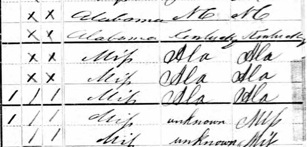 x x Alabama N C N C
x x Alabama Kentucky Kentucky
x x Miſs Ala Ala
x x Miſs Ala Ala
1 1 1 Miſs Ala Ala
1 1 1 Miſs unknown Miſs
1 1 Miſs unknown Miſs